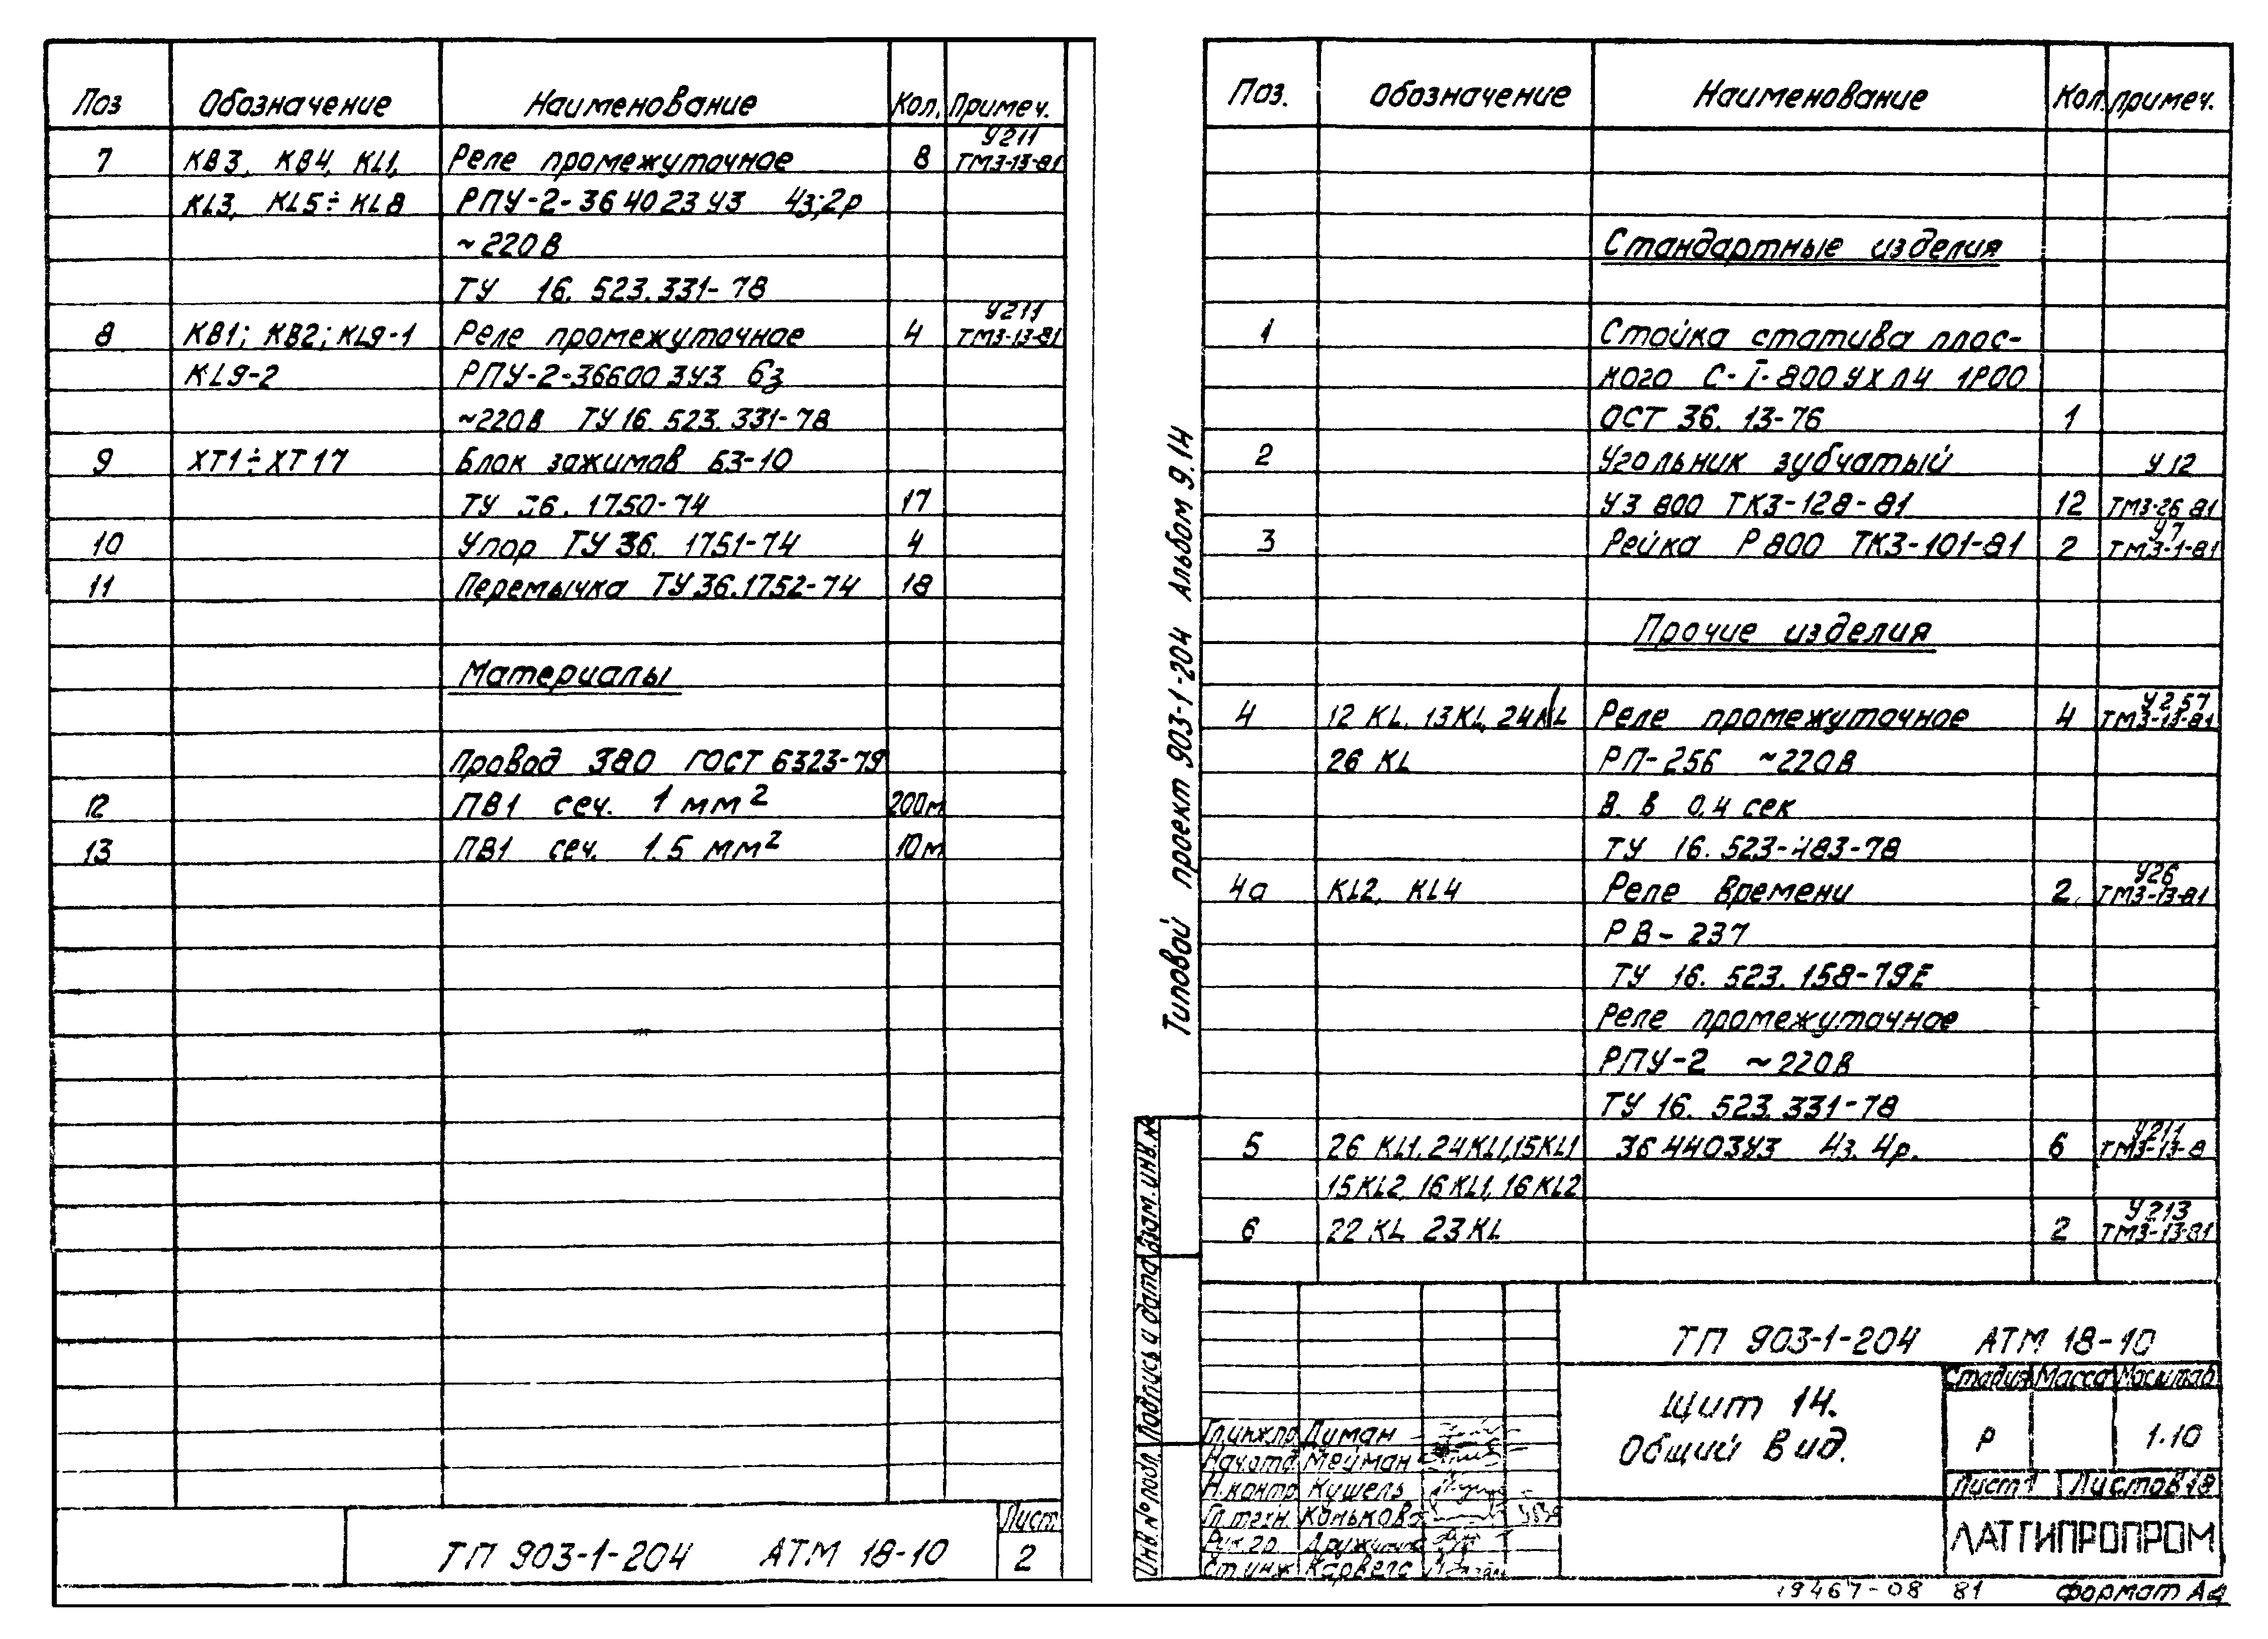 Поз Обозначение Наименование Кол. Примеч.
У211
7 КВ3, КВ4, KL1, Реле промежуточное 8 ТМ3-13-81
KL3, KL5÷KL8 РПУ-2-364023У3 4з;2р
~220В
ТУ 16.523.331-78
У211
8 КВ1; КВ2; KL9-1 Реле промежуточное 4 ТМ3-13-81
KL9-2 РПУ-2-366003У3 6з
~220В ТУ 16.523.331-78
9 ХТ1÷ХТ17 Блок зажимов БЗ-10
ТУ 36.1750-74 17
10 Упор ТУ 36.1751-74 4
11 Перемычка ТУ 36.1752-74 18
Материалы
Провод 380 ГОСТ 6323-79
12 ПВ1 сеч. 1 мм² 200м
13 ПВ1 сеч. 1.5 мм² 10м
ТП 903-1-204 АТМ 18-10
Лист
2
Типовой проект 903-1-204 Альбом 9.14
Поз. Обозначение Наименование Кол. Примеч.
Стандартные изделия
1 Стойка статива плос-
кого С-I-800 УХЛ4 1Р00
ОСТ 36.13-76 1
2 Угольник зубчатый У12
УЗ 800 ТК3-128-81 12 ТМ3-26 81
У7
3 Рейка Р800 ТК3-101-81 2 ТМ3-1-81
Прочие изделия
У257
4 12 KL, 13KL, 24KL Реле промежуточное 4 ТМ3-13-81
26 KL РП-256 ~220В
В. в 0,4 сек
ТУ 16.523-483-78
У26
4а KL2, KL4 Реле времени 2 ТМ3-13-81
РВ-237
ТУ 16.523.158-79Е
Реле промежуточное
РПУ-2 ~220В
ТУ 16.523.331-78
У211
5 26 KL1, 24KL1, 15KL1 364403У3 4з. 4р. 6 ТМ3-13-8
15KL2, 16KL1, 16KL2
У213
6 22 KL 23KL 2 ТМ3-13-81
Инв. № подл. Подпись и дата Взам. инв. №
ТП 903-1-204 АТМ 18-10
Щит 14.
Общий вид.
Стадия Масса Масштаб
Р 1.10
Лист 1 Листов 18
ЛАТГИПРОПРОМ
Гл.инж.пр Лиман
Нач.отд. Мейман
Н.контр Кушель
Гл.техн. Конькова
Рук.гр
Ст.инж Карвелс
19467-08 81 Формат А4